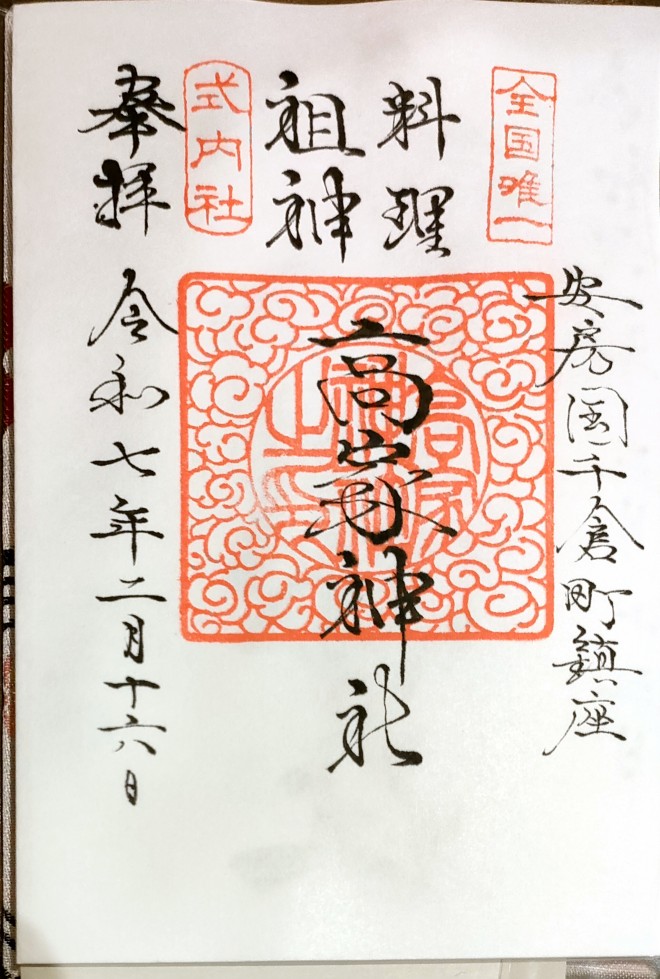 全国唯一
安房国千倉町鎮座
料理
祖神
高家神社
式内社
奉拝
令和七年二月十六日